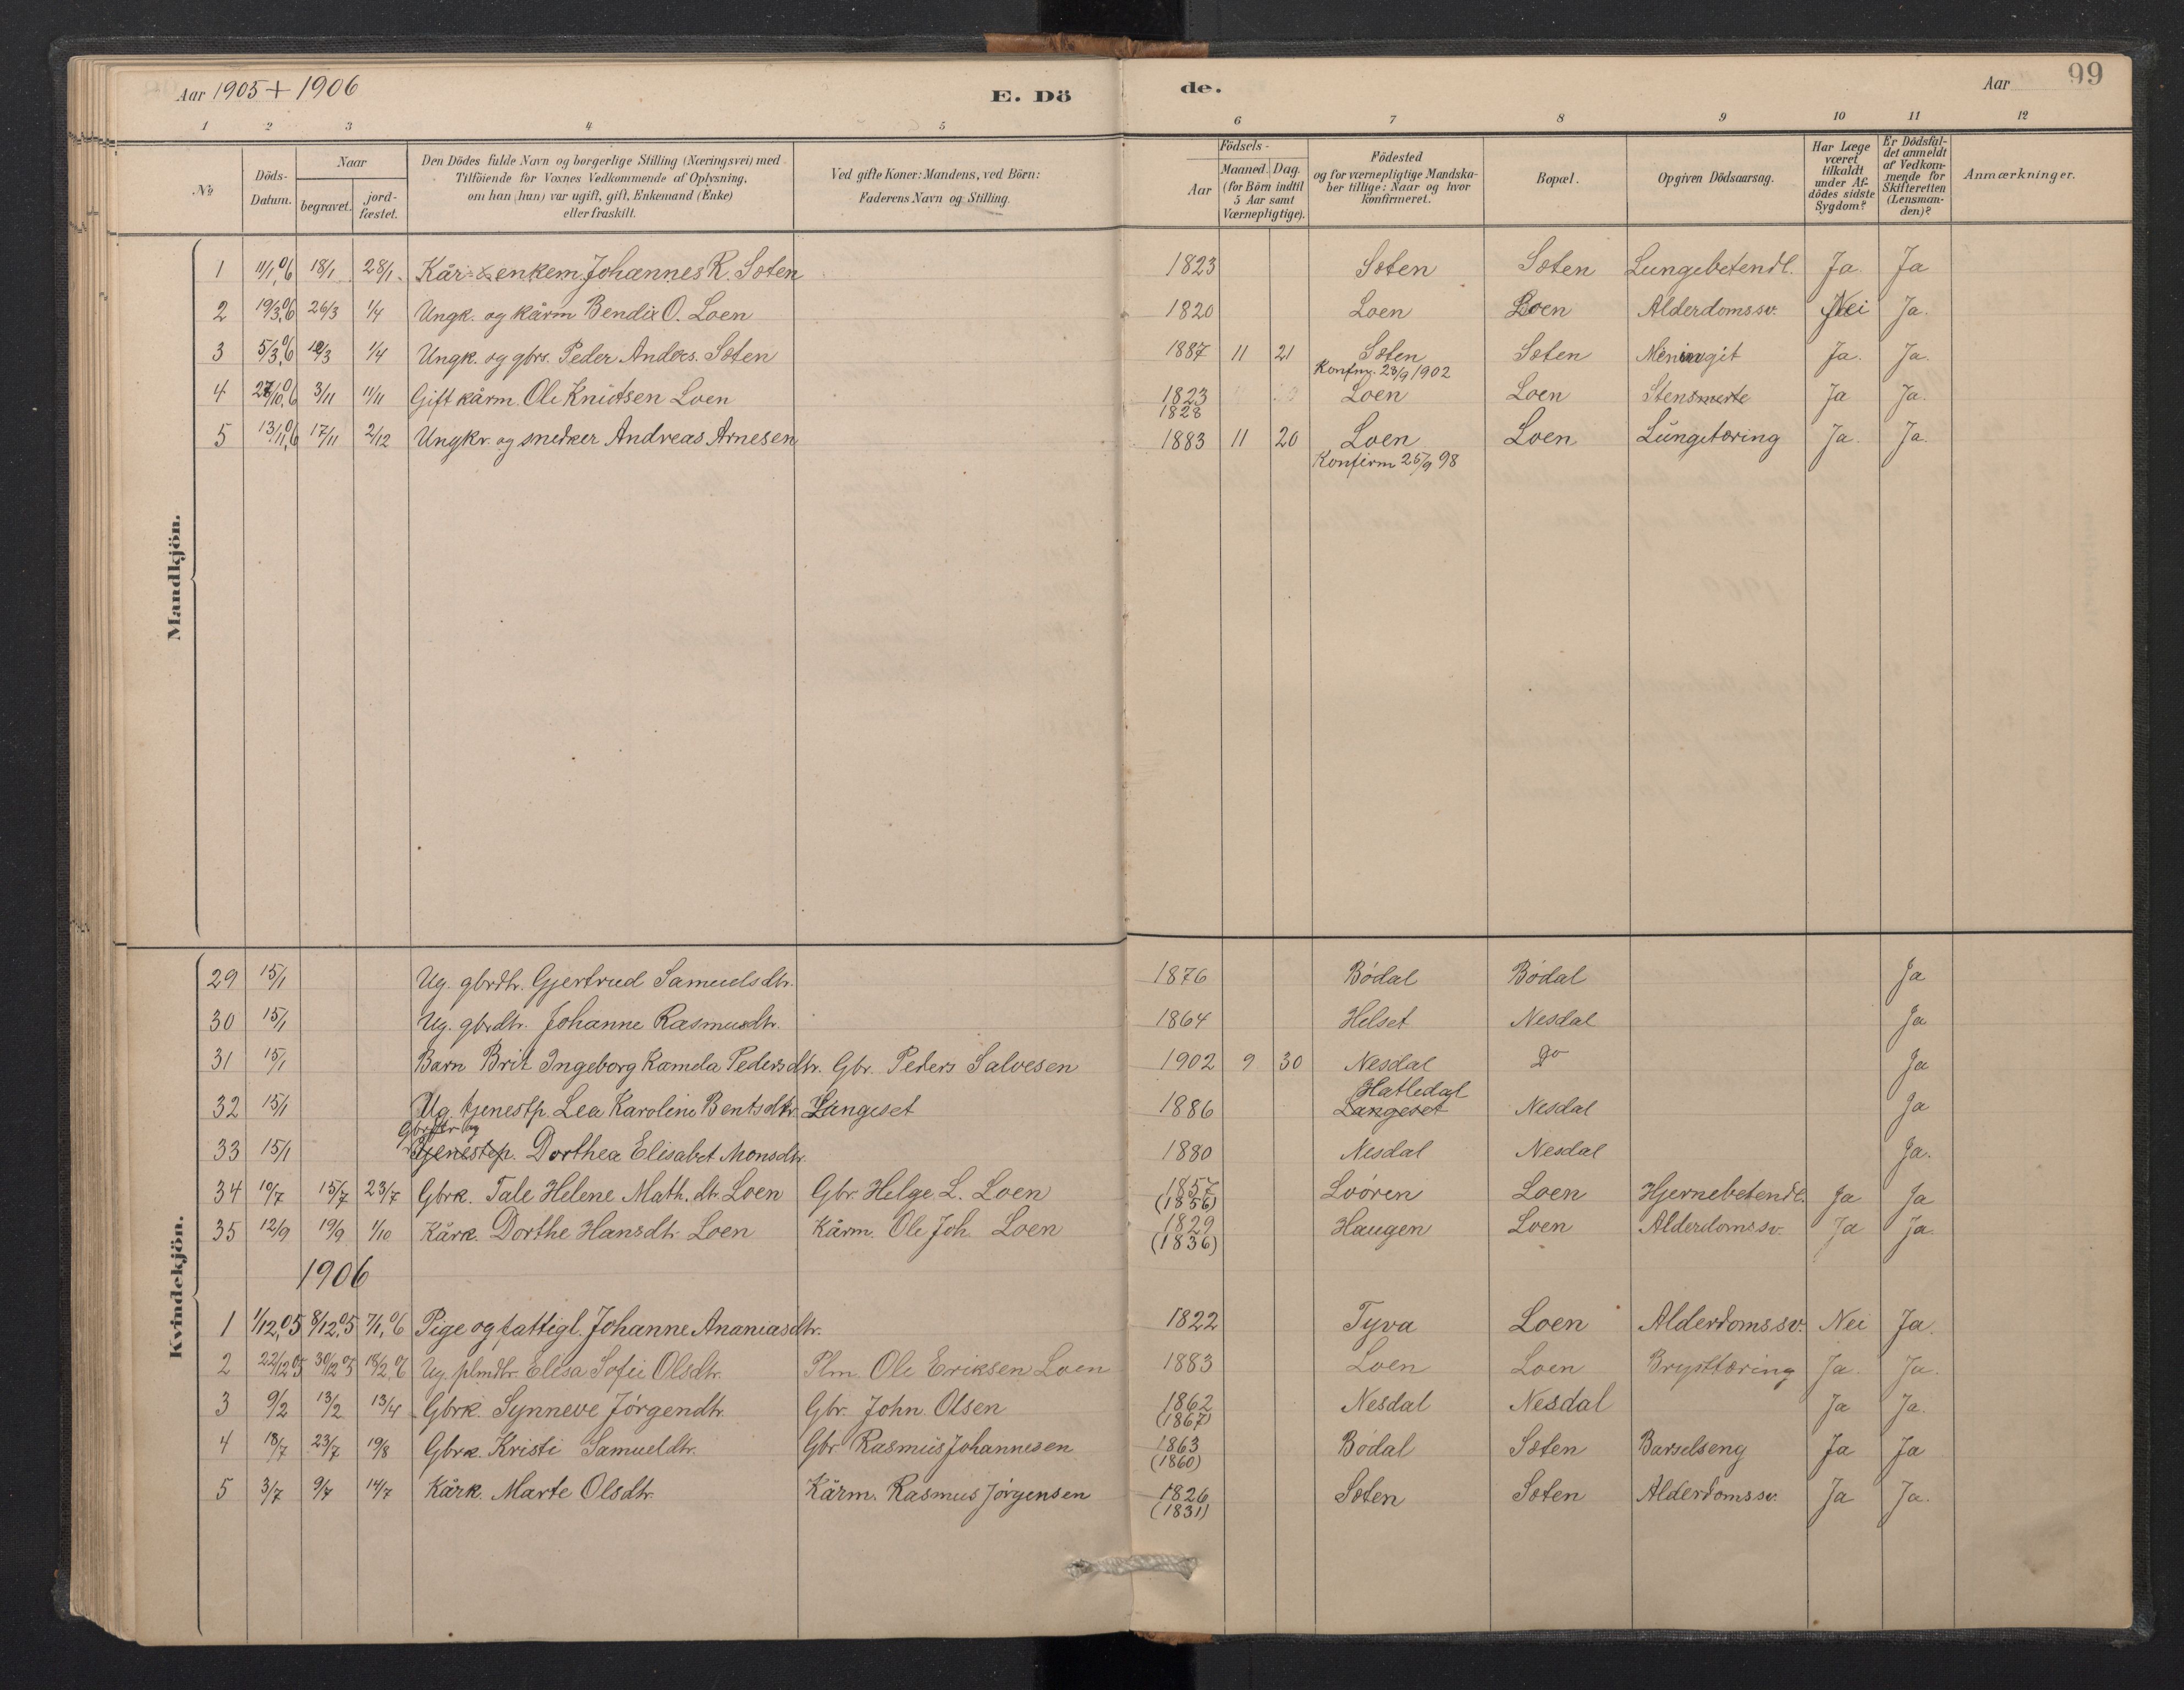 Aar 1905 + 1906 E. Dö de. Aar 99
1 2 3 4 5 6 7 8 9 10 11 12
No Döds-Datum. Naar begravet. jord-fæstet. Den Dödes fulde Navn og borgerlige Stilling (Næringsvei) med Tilföiende for Voxnes Vedkommende af Oplysning, om han (hun) var ugift, gift, Enkemand (Enke) eller fraskilt. Ved gifte Koner: Mandens, ved Börn: Faderens Navn og Stilling. Födsels- Aar Maaned. Dag. (for Börn indtil 5 Aar samt Værnepligtige). Födested og for værnepligtige Mandskaber tillige: Naar og hvor konfirmeret. Bopæl. Opgiven Dödsaarsag. Har Læge været tilkaldt under Afdödes sidste Sygdom? Er Dödsfaldet anmeldt af Vedkommende for Skifteretten (Lensmanden)? Anmærkninger.
Mandkjön.
1 11/1,06 18/1 28/1. Kår- & enkem. Johannes R. Sæten 1823 Sæten Sæten Lungebetendl. Ja Ja
2 19/3,06 26/3 1/4 Ungk. og kårm Bendix O. Loen 1820 Loen Loen Alderdomssv. Nei Ja.
3 5/3,06 12/3 1/4 Ungk. og gbrs. Peder Anders. Sæten 1887 11 21 Sæten Sæten Meningit Ja. Ja.
Konfm. 28/9 1902
4 27/10,06 3/11 11/11 Gift kårm. Ole Knutsen Loen 1823 Loen Loen Stensmerte Ja Ja.
1828
5 13/11,06 17/11 2/12 Ungkr. og snedker Andreas Arnesen 1883 11 20 Loen Loen Lungetæring Ja. Ja.
Konfirm 25/9 98
Kvindekjön.
29 15/1 Ug. gbrdtr. Gjertrud Samuelsdtr. 1876 Bödal Bödal Ja
30 15/1 Ug. gbrdtr. Johanne Rasmusdtr. 1864 Helset Nesdal Ja
31 15/1 Barn Brit Ingeborg Kamela Pedersdtr. Gbr. Peders Salvesen 1902 9 30 Nesdal Do Ja
Hatledal
32 15/1 Ug. tjenestp. Lea Karoline Bentsdtr. Langeset 1886 Langeset Nesdal Ja
Gbrdtr ug
33 15/1 Tjenestep. Dorthea Elisabet Monsdtr. 1880 Nesdal Nesdal Ja.
34 10/7 15/7 23/7 Gbrk. Tale Helene Math. dtr. Loen Gbr. Helge L. Loen 1857 Loören Loen Hjernebetendl. Ja Ja
(1856)
35 12/9 19/9 1/10 Kårk. Dorthe Hansdtr. Loen Kårm. Ole Joh. Loen 1829 Haugen Loen Alderdomssv. Ja Ja.
(1836)
1906
1 1/12,05 8/12,05 7/1,06 Pige og fattigl. Johanne Ananiasdtr. 1822 Tyva Loen Alderdomssv. Nei Ja.
2 22/12 05 30/12 05 18/2,06 Ug. plmdtr. Elisa Sofie Olsdtr. Plm. Ole Eriksen Loen 1883 Loen Loen Brysttæring Ja. Ja.
3 9/2 13/2 13/4 Gbrk. Synneve Jörgendtr. Gbr. John Olsen 1862 Nesdal Nesdal Ja Ja.
(1867)
4 18/7 23/7 19/8 Gbrk. Kristi Samueldtr. Gbr Rasmus Johannesen 1863 Bödal Sæten Barselseng Ja Ja
(1860)
5 3/7 9/7 14/7 Kårk. Marte Olsdtr. Kårm. Rasmus Jörgensen 1826 Sæten Sæten Alderdomssv. Ja Ja.
(1831)